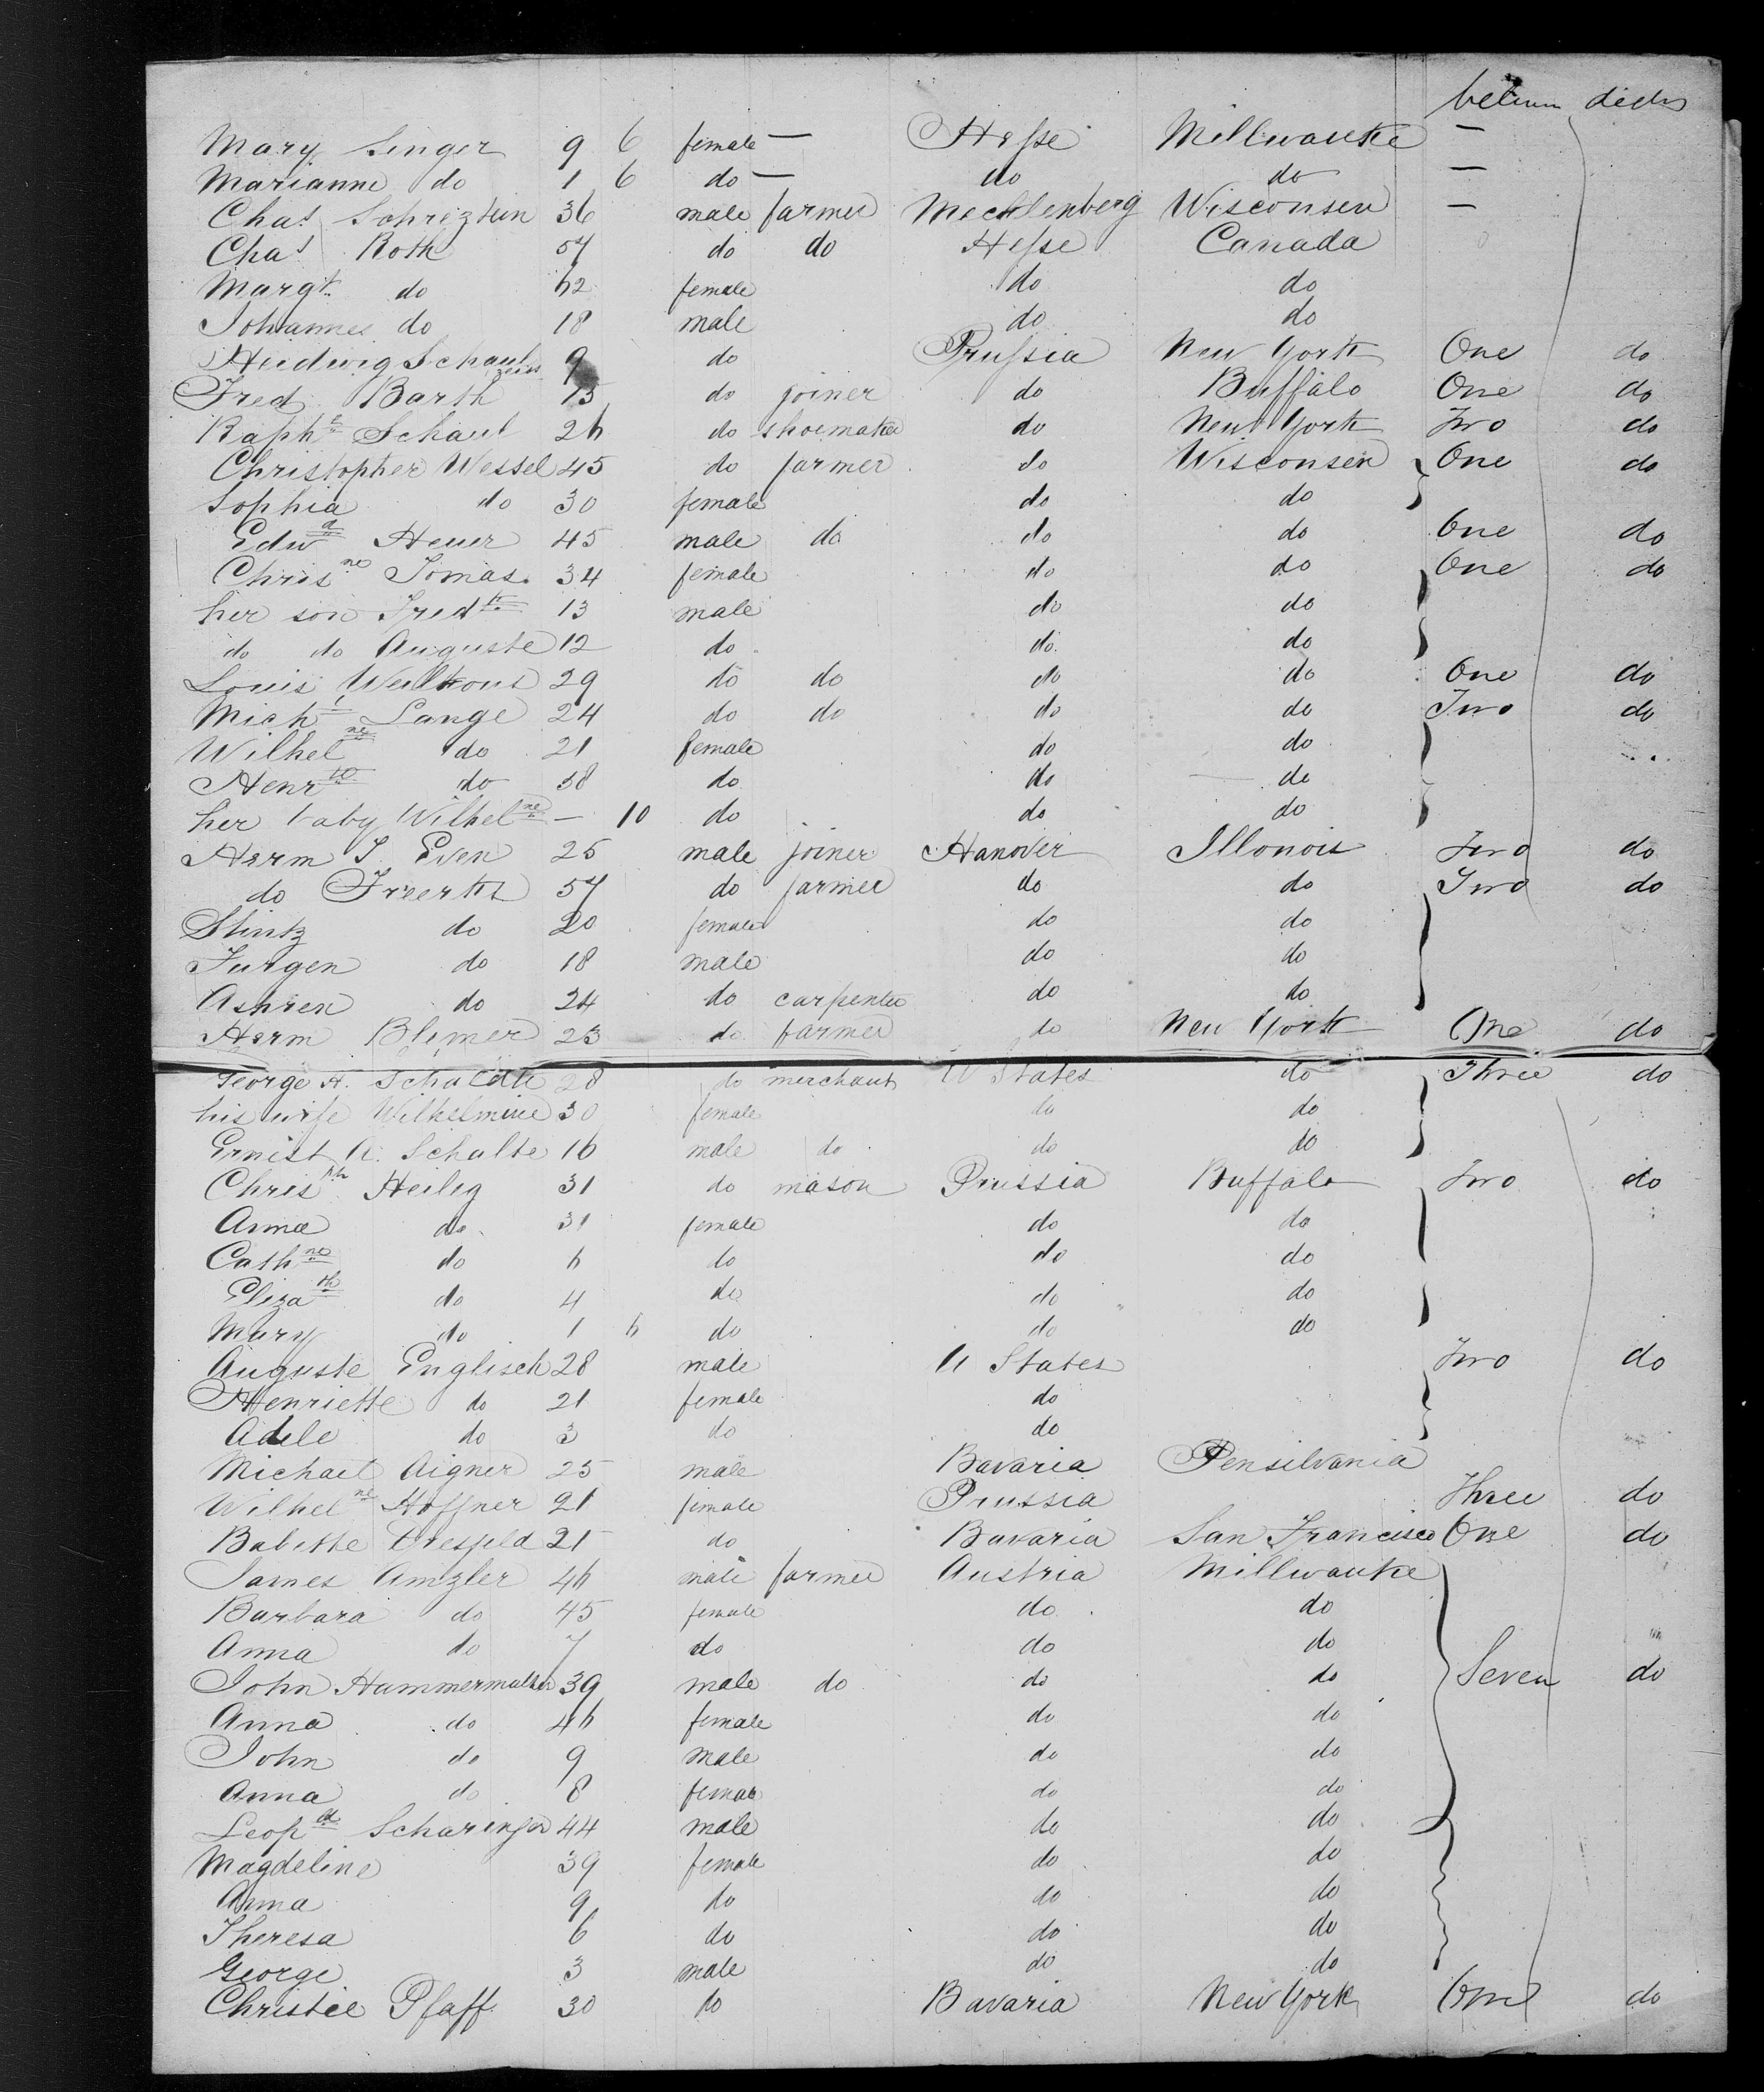 between decks
Mary Singer 9 6 female — Hesse Millwaukee —
Marianne do 1 6 do — do do —
Chas. 36 male farmer Mecklenberg Wisconsen —
Chas Roth 57 do do Hesse Canada
Margt. do 62 female do do
Johannes do 18 male do do
9 do Prussia New York One do
Fred Barth 15 do joiner do Buffalo One do
Raphl Schaul 26 do shoemaker do New York Two do
Christopher Wessel 45 do farmer do Wisconsen One do
Sophia do 30 female do do
Edwd Heuer 45 male do do do One do
Chrisne Tomas. 34 female do do One do
her son Fredk 13 male do do
do do Auguste 12 do do do
Louis 29 do do do do One do
Michl Lange 24 do do do do Two do
Wilhelne do 21 female do do
Henrte do 38 do do do
her baby Wilhelne — 10 do do do
Herm J. Even 25 male joiner Hanover Illonois Two do
do Freerks 57 do farmer do do Two do
Stintz do 20 female do do
Jurgen do 18 male do do
do 24 do carpenter do do
Herm 23 do farmer do New York One do
George A. Schulte 28 do merchant U States do Three do
his wife Wilhelmine 30 female do do
Ernest A. Schulte 16 male do do do
Chrisph Heilig 31 do mason Prussia Buffalo Two do
Anna do 31 female do do
Cathne do 6 do do do
Elizath do 4 do do do
Mary do 1 6 do do do
Auguste Englisch 28 male U States Two do
Henriette do 21 female do
Adele do 3 do do
Michael Aigner 25 male Bavaria Pensilvania
Wilhelne Hoffner 21 female Prussia Three do
Babette Dresfeld 21 do Bavaria San Francisco One do
James Amzler 46 male farmer Austria Millwaukee
Barbara do 45 female do do
Anna do 7 do do do
John 39 male do do do Seven do
Anna do 46 female do do
John do 9 male do do
Anna do 8 female do do
Leopld Scharinger 44 male do do
Magdeline 39 female do do
Anna 9 do do do
Theresa 6 do do do
George 3 male do do
Christie Pfaff 30 do Bavaria New York One do